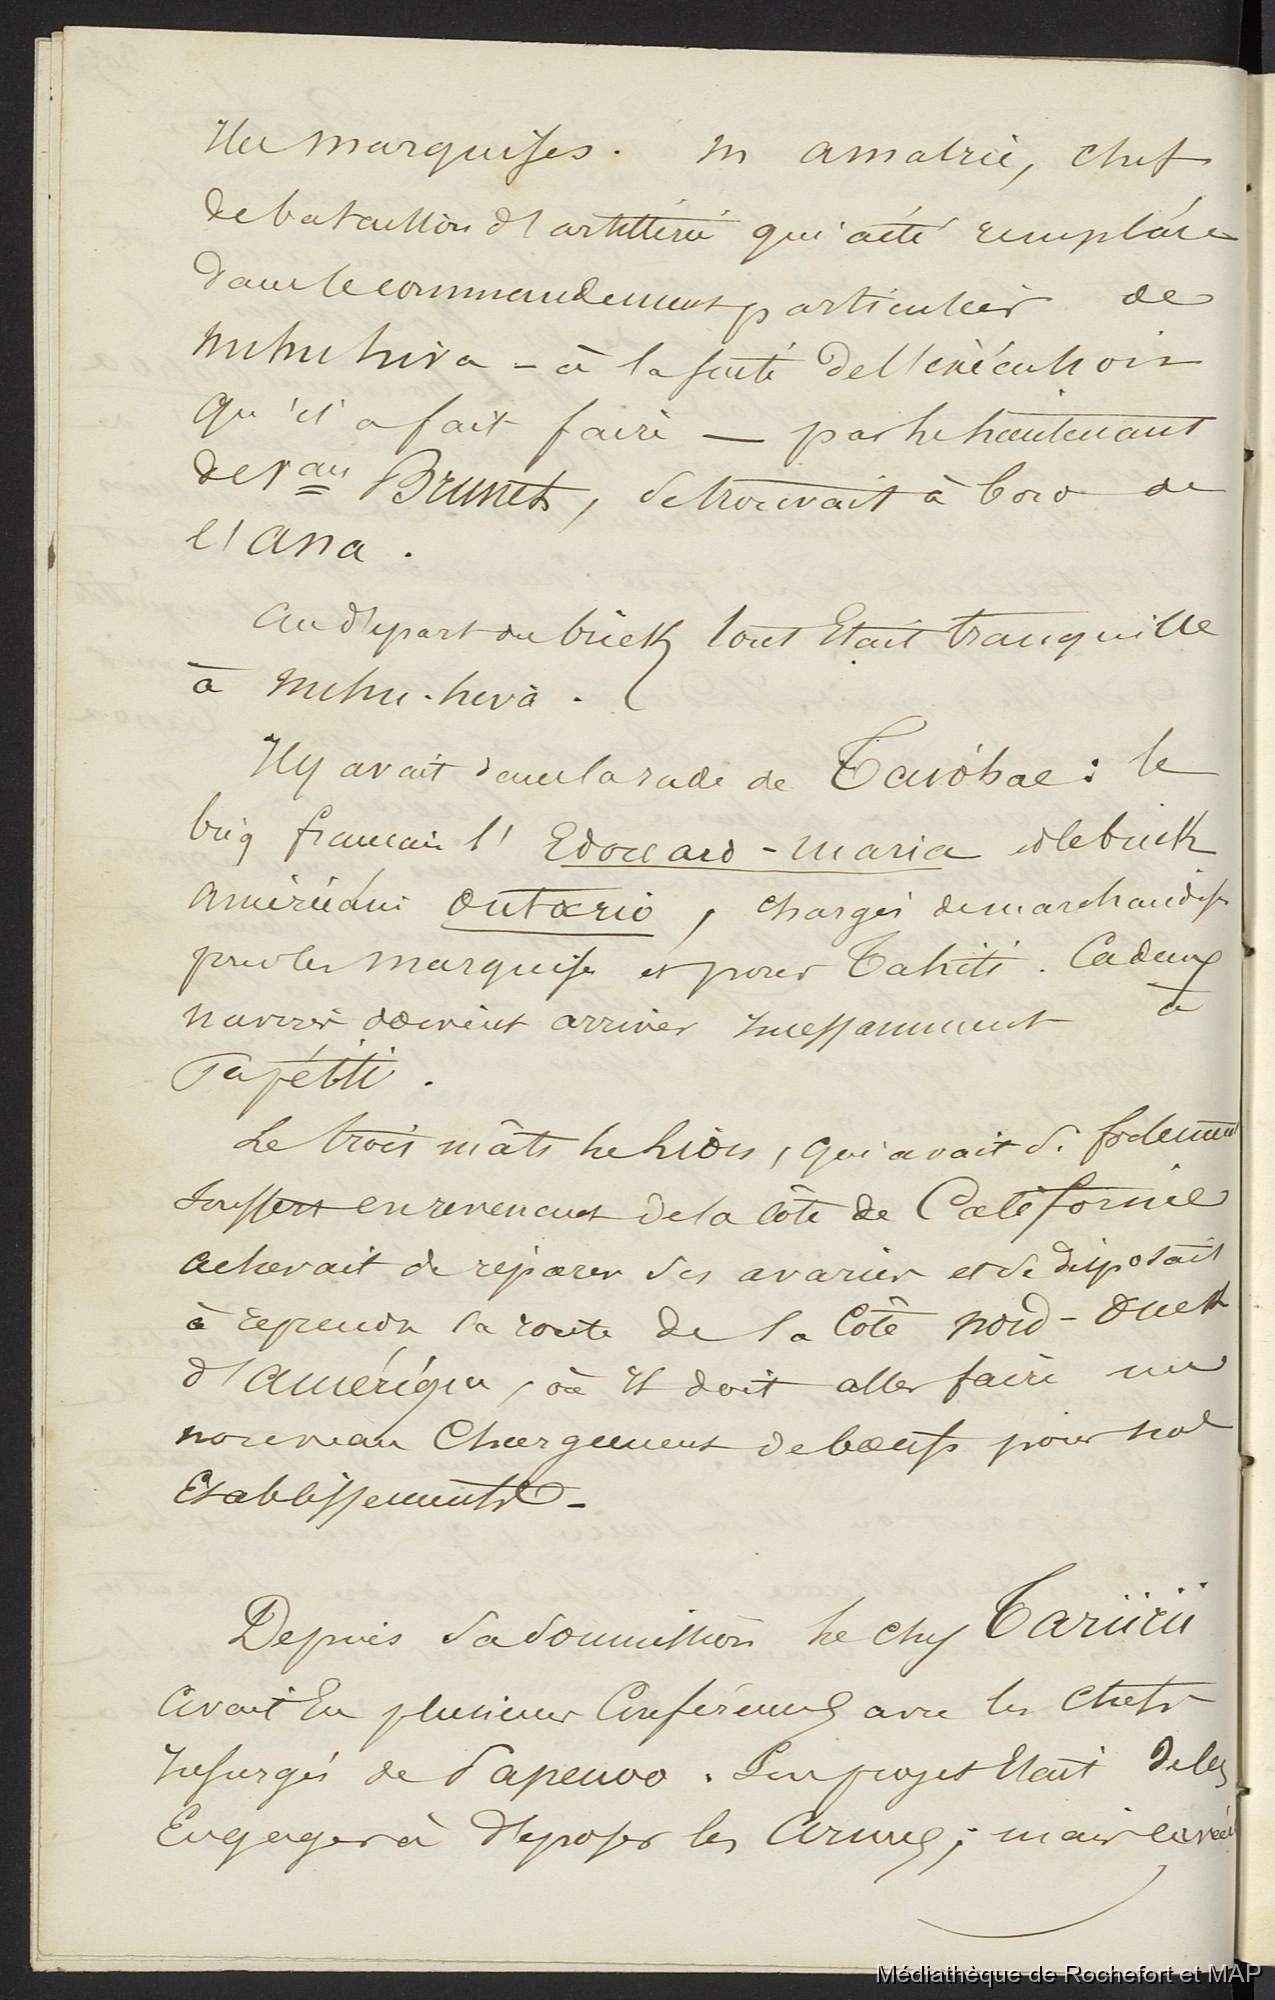 Iles marquises. M amalric, chef
de bataillon d'artillerie qui a été remplacé
dans le commandement particulier de
nuhu hiva - à la suite de l'exécution
qu'il a fait faire — par le lieutenant
de vau Brunet, se trouvait à bord de
l'ana.
au départ du brick tout Etait tranquille
à nuhu-hiva.
Il y avait dans la rade de Taïohae : le
brig francais l'Edouard-maria et le brick
américain ontario, chargés de marchandises
pour les marquises et pour Tahiti. Ces deux
navires doivent arriver incessamment à
Papéïti.
Le trois mâts le Lion, qui avait si fortement
souffert en revenant de la côte de Californie
achevait de réparer ses avaries et se disposait
à reprendre la route de la Côte nord-ouest
d'amérique, où il doit aller faire un
nouveau Chargement de boeufs pour nos
Etablissements -
Depuis sa soumission le chef Tariirii
avait Eu plusieurs Conférences avec les chefs
insurgés de Papenoo. Son projet Etait de les
Engager à déposer les armes ; mais
Médiathèque de Rochefort et MAP